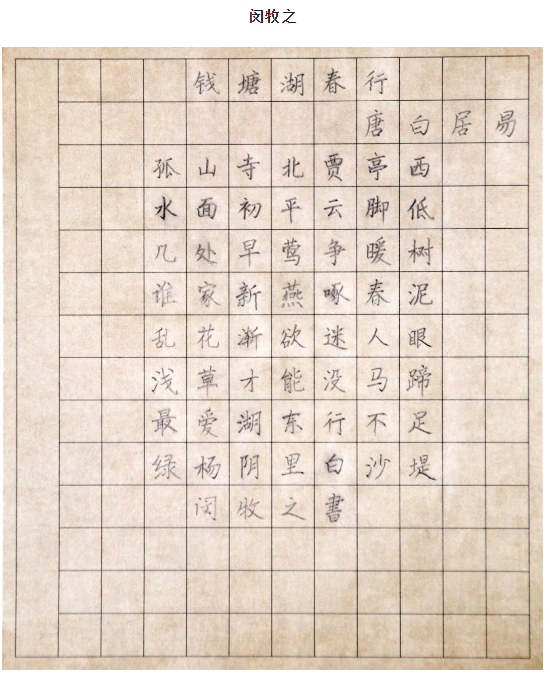 闵牧之
钱塘湖春行
唐白居易
孤山寺北贾亭西
水面初平云脚低
几处早莺争暖树
谁家新燕啄春泥
乱花渐欲迷人眼
浅草才能没马蹄
最爱湖东行不足
绿杨阴里白沙堤
闵牧之書